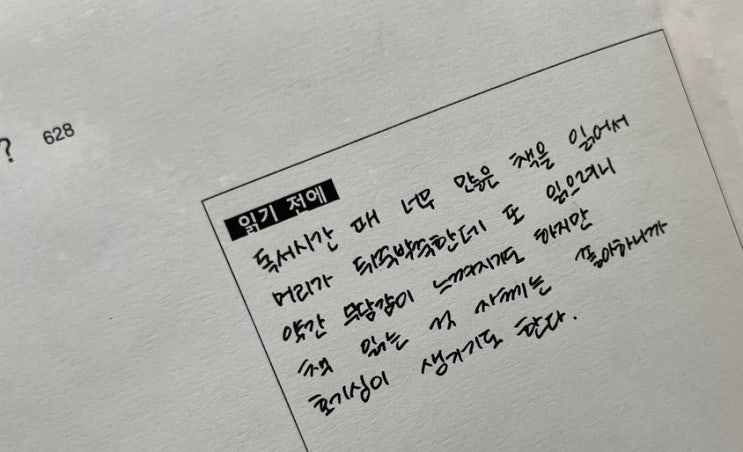 ? 628
읽기 전에
독서시간 때 너무 많은 책을 읽어서
머리가 뒤죽박죽한데 또 읽으려니
약간 부담감이 느껴지기도 하지만
책 읽는 것 자체는 좋아하니까
호기심이 생기기도 한다.